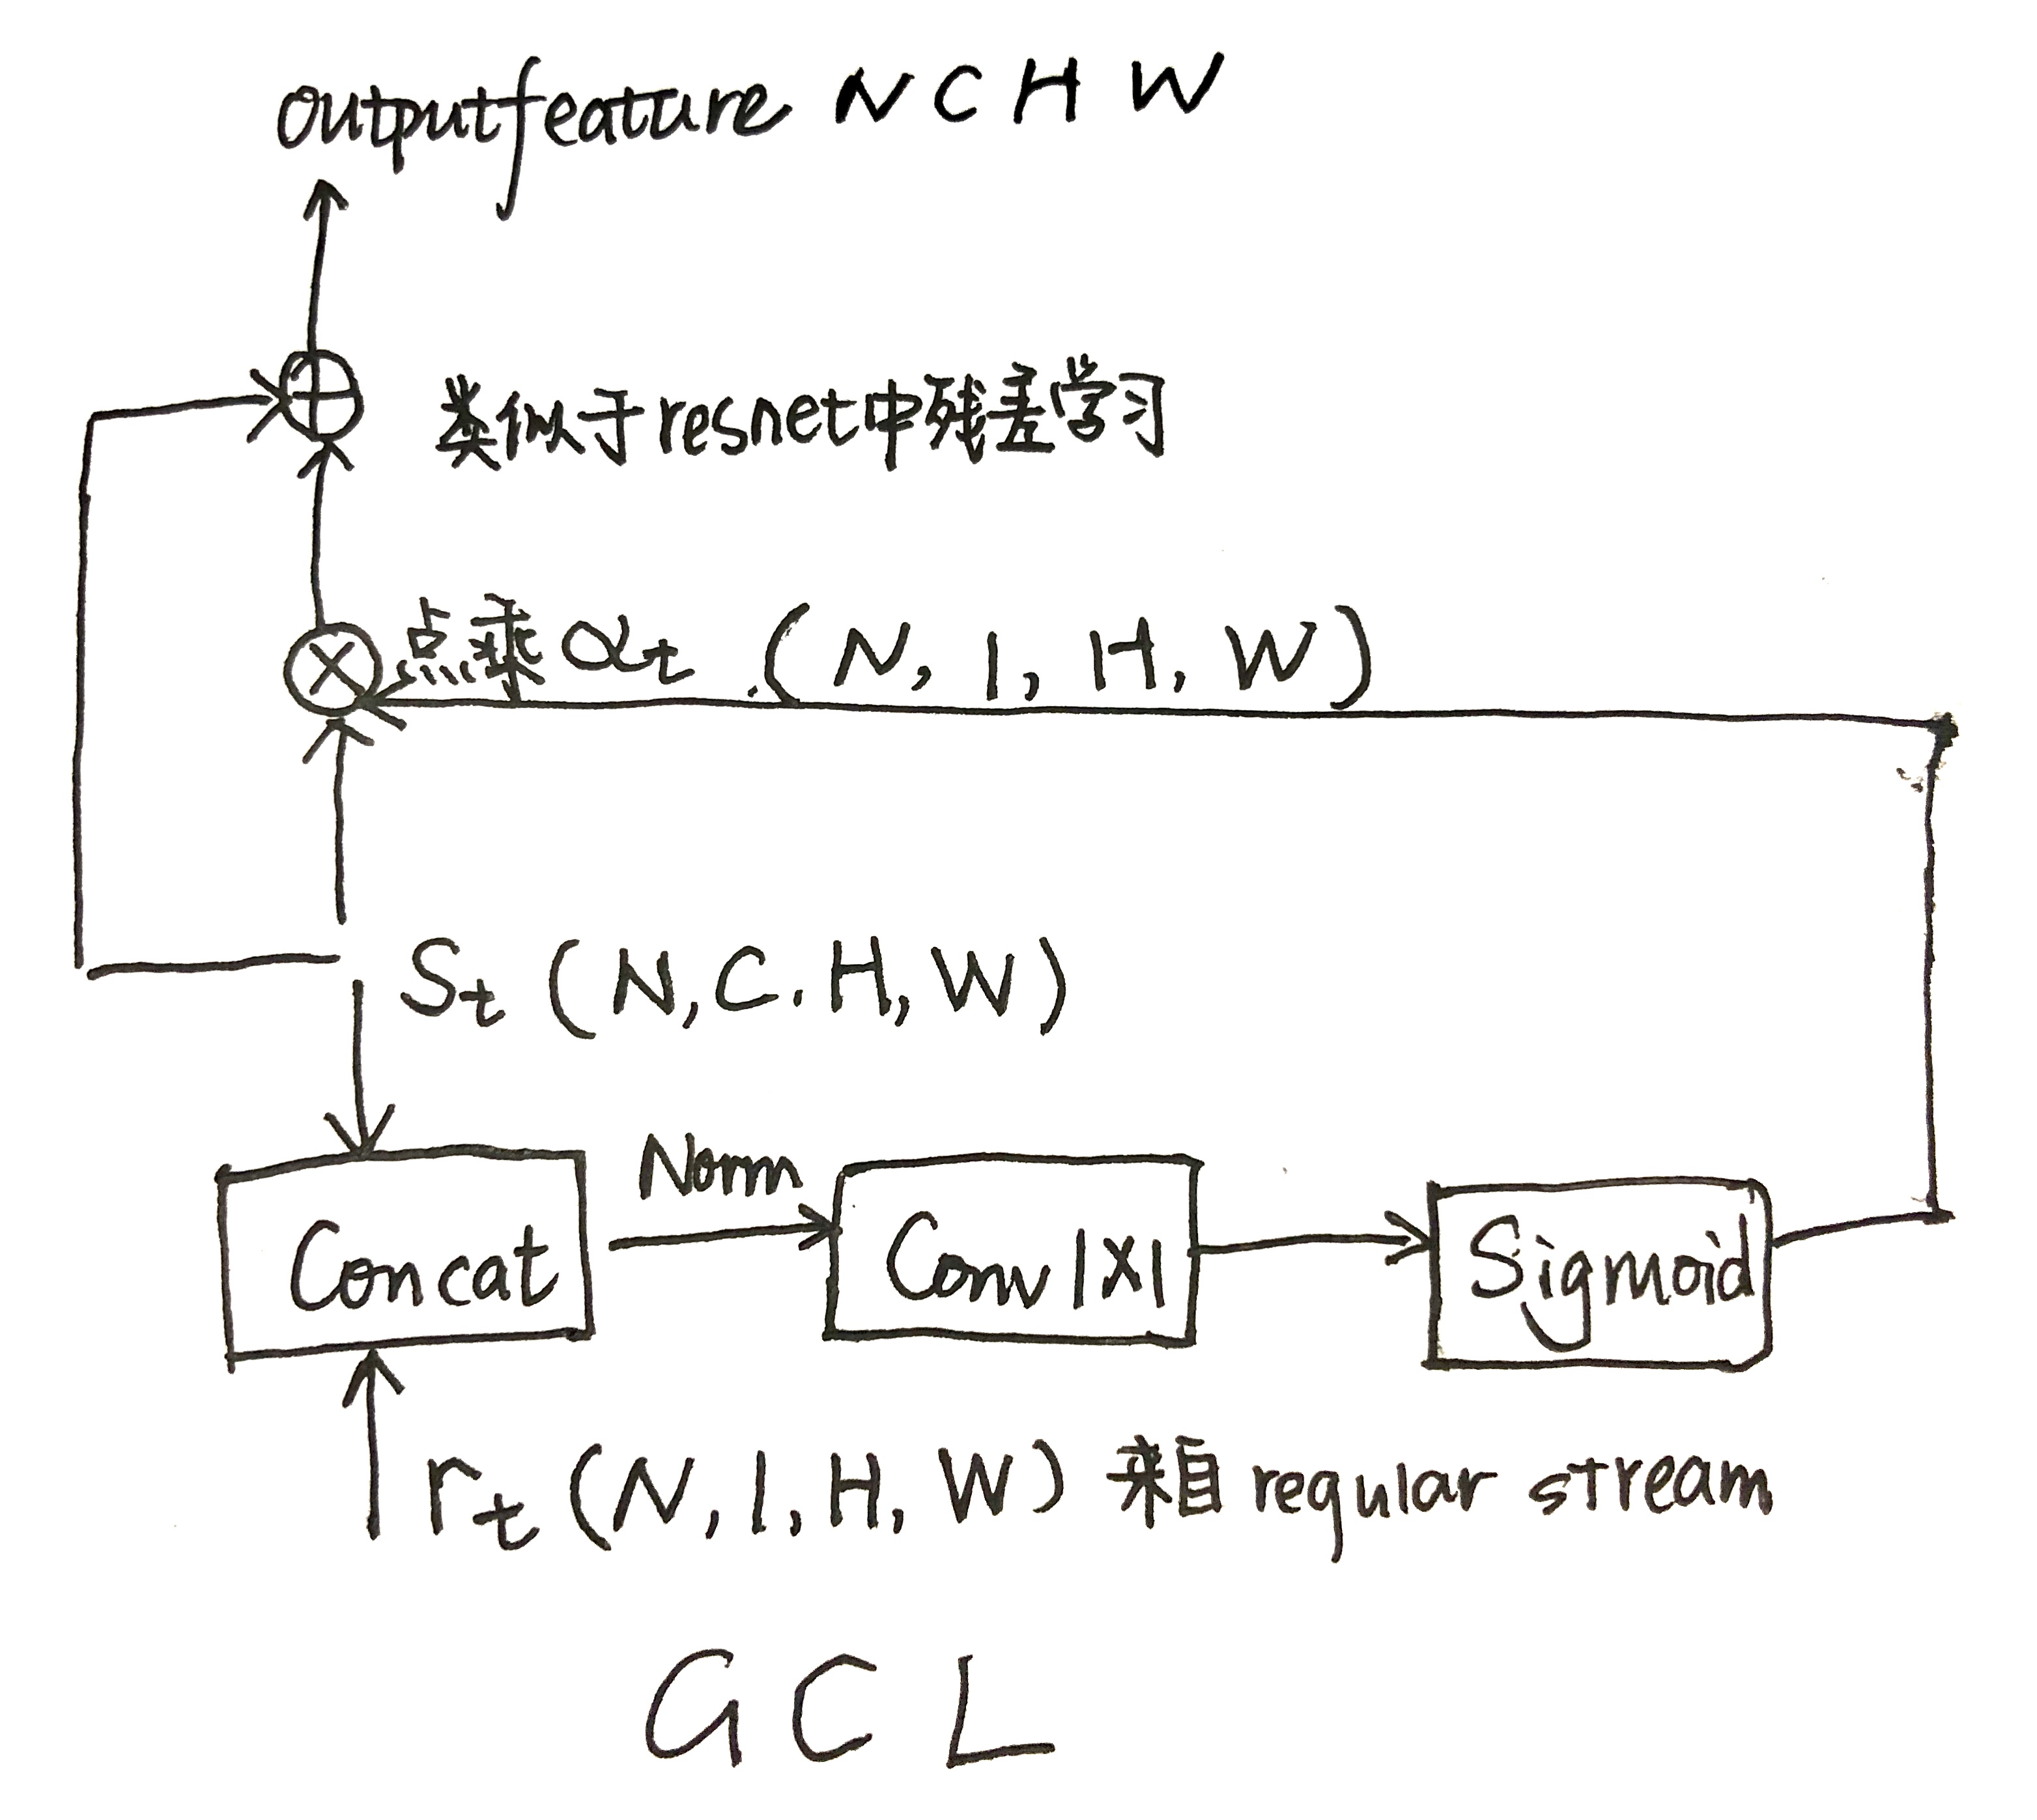 outputfeature N C H W
类似于resnet中残差学习
点乘 αt (N, 1, H, W)
St (N, C, H, W)
Norm
Concat
Conv 1X1
Sigmoid
rt (N, 1, H, W) 来自 regular stream
GCL